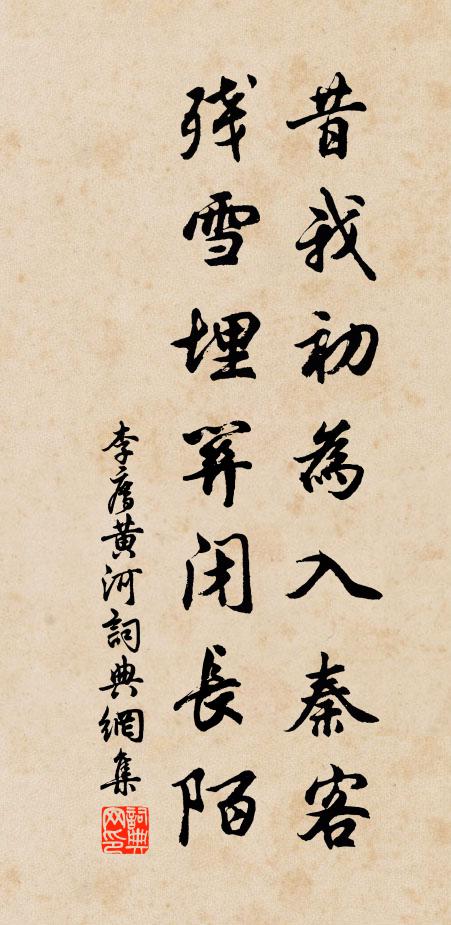 昔我初為入秦客
残雪埋闭長陌
李廌黄河詞典網集
詞典網印